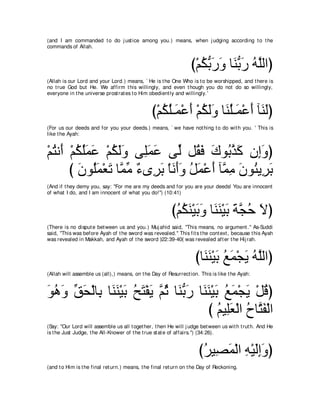 (and I am commanded to do justice among you.) means, when judging according to the
commands of Allah.
(اللَّهُ رَبُّنَا وَرَبُّكُمْ)
(Allah is our Lord and your Lord.) means, ` He is the One Who is to be worshipped, and there is
no true God but He. We affirm this willingly, and even though you do not do so willingly,
everyone in the universe prostrates to Him obediently and willingly.'
(لَنَآ أَعْمَـلُنَا وَلَكُمْ أَعْمَـلُكُمْ)
(For us our deeds and for you your deeds.) means, ` we have nothing to do with you. ' This is
like the Ayah:
(وَإِن كَذَّبُوكَ فَقُل لِّى عَمَلِى وَلَكُمْ عَمَلُكُمْ أَنتُمْ
بَرِيئُونَ مِمَّآ أَعْمَلُ وَأَنَاْ بَرِىءٌ مِّمَّا تَعْمَلُونَ )
(And if they deny you, say: "For me are my deeds and for you are your deeds! You are innocent
of what I do, and I am innocent of what you do!") (10:41)
(لاَ حُجَّةَ بَيْنَنَا وَبَيْنَكُمُ)
(There is no dispute between us and you.) Mujahid said, "This means, no argument.'' As-Suddi
said, "This was before Ayah of the sword was revealed.'' This fits the context, because this Ayah
was revealed in Makkah, and Ayah of the sword (22:39-40) was revealed after the Hijrah.
(اللَّهُ يَجْمَعُ بَيْنَنَا)
(Allah will assemble us (all),) means, on the Day of Resurrection. This is like the Ayah:
(قُلْ يَجْمَعُ بَيْنَنَا رَبُّنَا ثُمَّ يَفْتَحُ بَيْنَنَا بِالْحَقِّ وَهُوَ
الْفَتَّاحُ الْعَلِيمُ )
(Say: "Our Lord will assemble us all together, then He will judge between us with truth. And He
is the Just Judge, the All-Knower of the true state of affairs.'') (34:26).
(وَإِلَيْهِ الْمَصِيرُ)
(and to Him is the final return.) means, the final return on the Day of Reckoning.